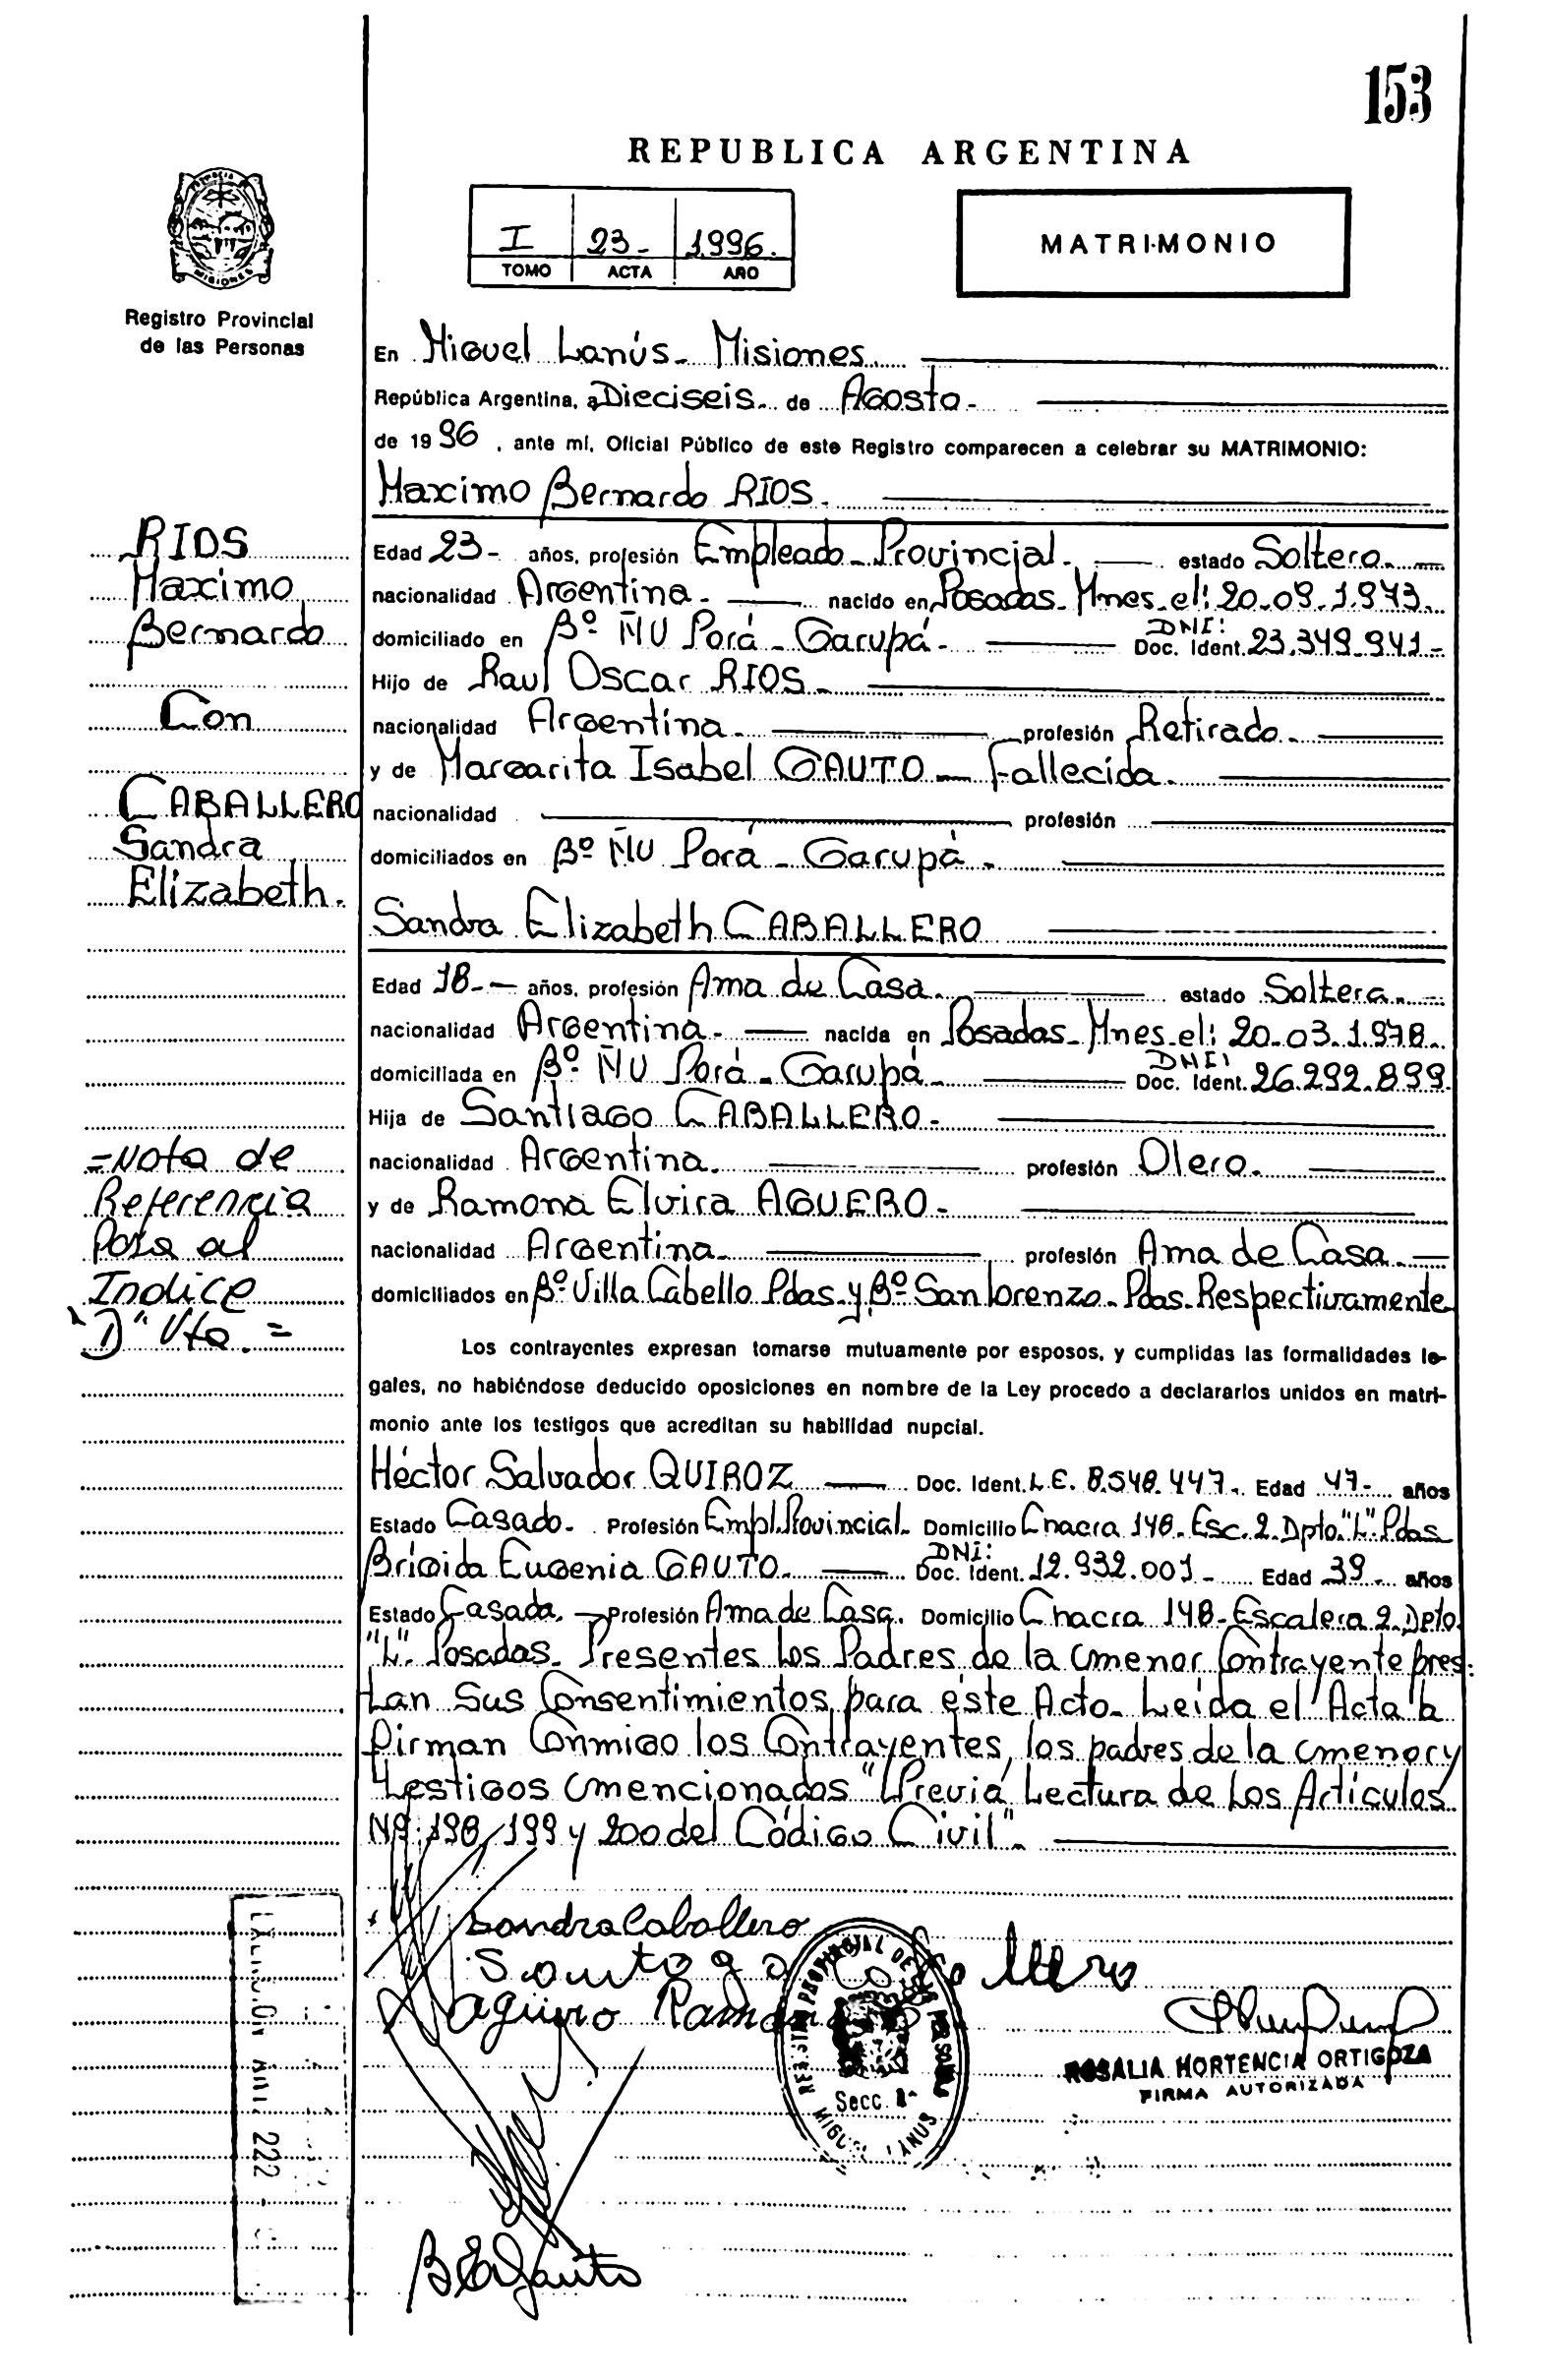 153
REPUBLICA ARGENTINA
I 23- 1996.
TOMO ACTA AÑO
MATRIMONIO
PROVINCIA
MISIONES
Registro Provincial
de las Personas
En Miguel Lanús- Misiones.
República Argentina, a Dieciseis- de Agosto-
de 1996, ante mí, Oficial Público de este Registro comparecen a celebrar su MATRIMONIO:
Maximo Bernardo RIOS.
RIOS
Maximo
Bernardo
Con
CABALLERO
Sandra
Elizabeth.
Edad 23- años, profesión Empleado-Provincial- estado Soltero.
nacionalidad Argentina- nacido en Posadas-Mnes-el: 20-09-1.973.
domiciliado en Bº ÑU Porá-Garupá- Doc. Ident. DNI: 23.349.941-
Hijo de Raul Oscar RIOS-
nacionalidad Argentina- profesión Retirado-
y de Margarita Isabel GAUTO- Fallecida.
nacionalidad profesión
domiciliados en Bº ÑU Porá-Garupá-
Sandra Elizabeth CABALLERO
Edad 18- años, profesión Ama de Casa. estado Soltera.
nacionalidad Argentina- nacida en Posadas-Mnes-el: 20-03-1.978-
domiciliada en Bº ÑU Porá-Garupá- Doc. Ident. DNI: 26.292.899
Hija de Santiago CABALLERO-
nacionalidad Argentina. profesión Olero.
y de Ramona Elvira AGUERO-
nacionalidad Argentina- profesión Ama de Casa.
domiciliados en Bº Villa Cabello Pdas-y Bº San Lorenzo-Pdas-Respectivamente
=Nota de
Referencia
Pasa al
Indice
"D" Vta.=
Los contrayentes expresan tomarse mutuamente por esposos, y cumplidas las formalidades le-
gales, no habiéndose deducido oposiciones en nombre de la Ley procedo a declararlos unidos en matri-
monio ante los testigos que acreditan su habilidad nupcial.
Héctor Salvador QUIROZ Doc. Ident. L.E. 8.548.447- Edad 47- años
Estado Casado- Profesión Empl.Provincial- Domicilio Chacra 148-Esc.2-Dpto."L".Pdas
Brígida Eugenia GAUTO- Doc. Ident. DNI: 12.932.001- Edad 39- años
Estado Casada. Profesión Ama de Casa. Domicilio Chacra 148-Escalera 2-Dpto.
"L". Posadas- Presentes los Padres de la menor Contrayente pres:
tan Sus Consentimientos para este Acto- Leída el Acta la
firman Conmigo los Contrayentes, los padres de la menor y
testigos mencionados "Previa Lectura de Los Artículos
Nº: 198, 199 y 200 del Código Civil"-
Sandra Caballero
Santiago Caballero
aguero Ramona
ROSALIA HORTENCIA ORTIGOZA
FIRMA AUTORIZADA
REGISTRO PROVINCIAL DE LAS PERSONAS
Secc. 1ª
MIGUEL LANUS
222
B E Gauto